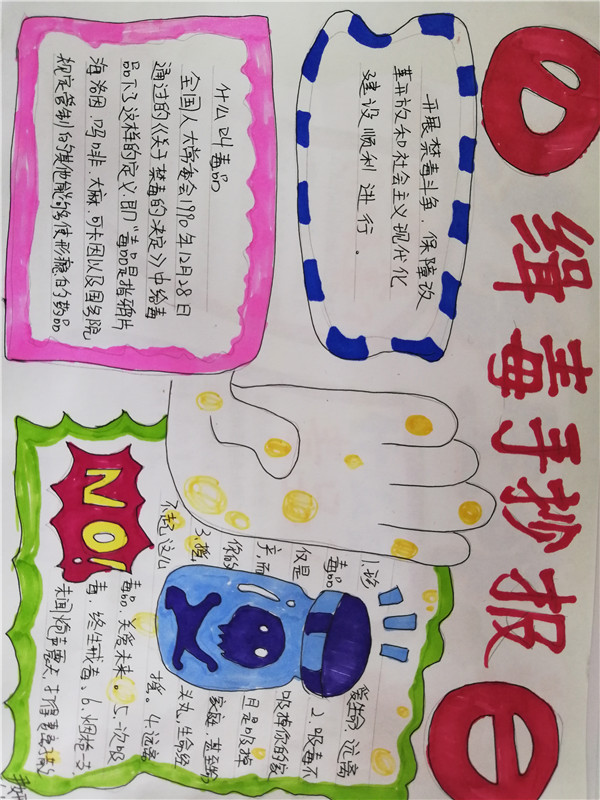 缉毒手抄报
开展禁毒斗争,保障改
革开放和社会主义现代化
建设顺利进行。
什么叫毒品
全国人大常委会1990年12月28日
通过的《关于禁毒的决定》中给毒
品下了这样的定义,即“毒品是指鸦片
海洛因、吗啡、大麻、可卡因以及国务院
规定管制的其他能够使形瘾的药品
1.珍爱生命,远离
毒品 2.吸毒不
仅是吸掉你的家
产,而且是吸掉
你的家庭,甚至命
3.摇头丸,生命经
不起这么摇。4.远离
毒品,关爱未来。5.一次吸
毒,终生戒毒。6.烟枪一支
未闻炮声震天,打得妻离子散
NO!